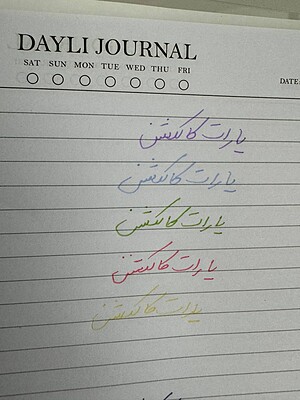 DAYLI JOURNAL
SAT SUN MON TUE WED THU FRI
DATE:
یارات کالکشن
یارات کالکشن
یارات کالکشن
یارات کالکشن
یارات کالکشن